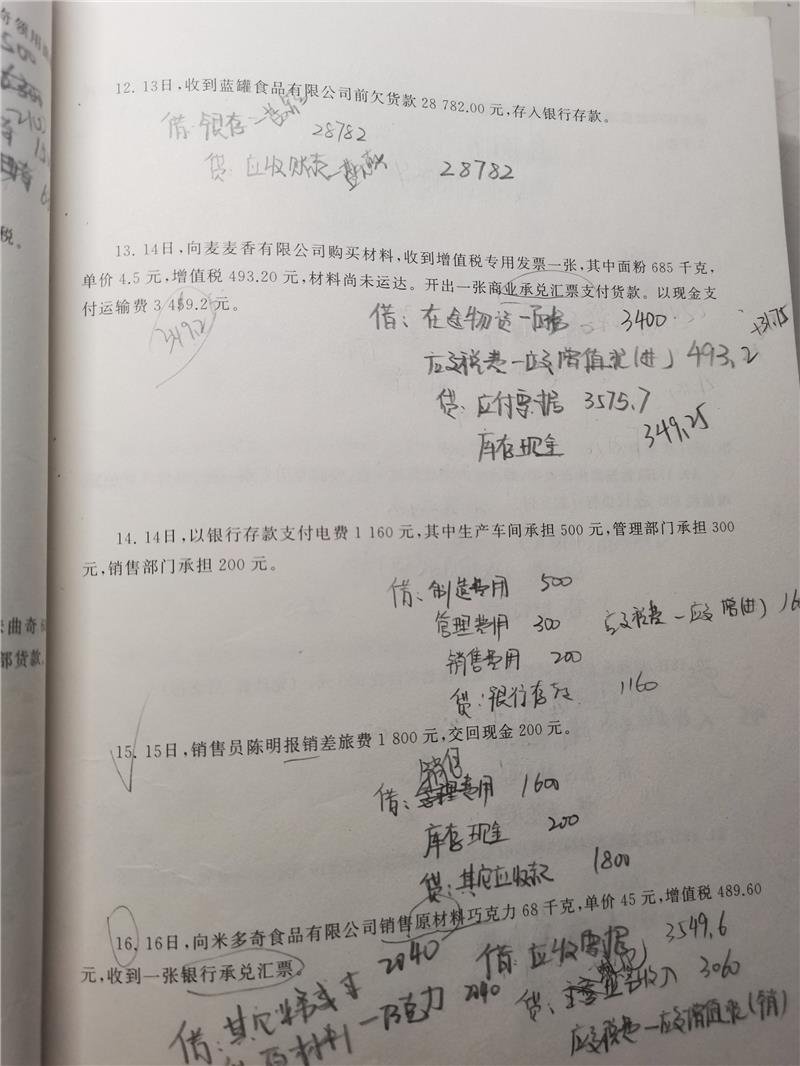 奇领用
500
12. 13日，收到蓝罐食品有限公司前欠货款 28 782.00 元，存入银行存款。
借：银存
28782
贷：应收账款
28782
税。
13. 14日，向麦麦香有限公司购买材料，收到增值税专用发票一张，其中面粉 685 千克，
单价 4.5 元，增值税 493.20 元，材料尚未运达。开出一张商业承兑汇票支付货款。以现金支
付运输费 3 459.2 元。
借：在途物资一面粉 3400
+31.75
应交税费一应交增值税(进) 493.2
贷：应付票据 3575.7
库存现金 349.25
14. 14日，以银行存款支付电费 1 160 元，其中生产车间承担 500 元，管理部门承担 300
元，销售部门承担 200 元。
借：制造费用 500
管理费用 300 应交税费一应交增(进) 160
销售费用 200
贷：银行存款 1160
曲奇
部货款。
15. 15日，销售员陈明报销差旅费 1 800 元，交回现金 200 元。
销售
借：费用 1600
库存现金 200
贷：其它应收款 1800
16. 16日，向米多奇食品有限公司销售原材料巧克力 68 千克，单价 45 元，增值税 489.60
元，收到一张银行承兑汇票。
借：应收票据 3549.6
贷：收入 3060
应交税费一应交增值税(销)
借：其它业务成本 2040
原材料一巧克力 2040